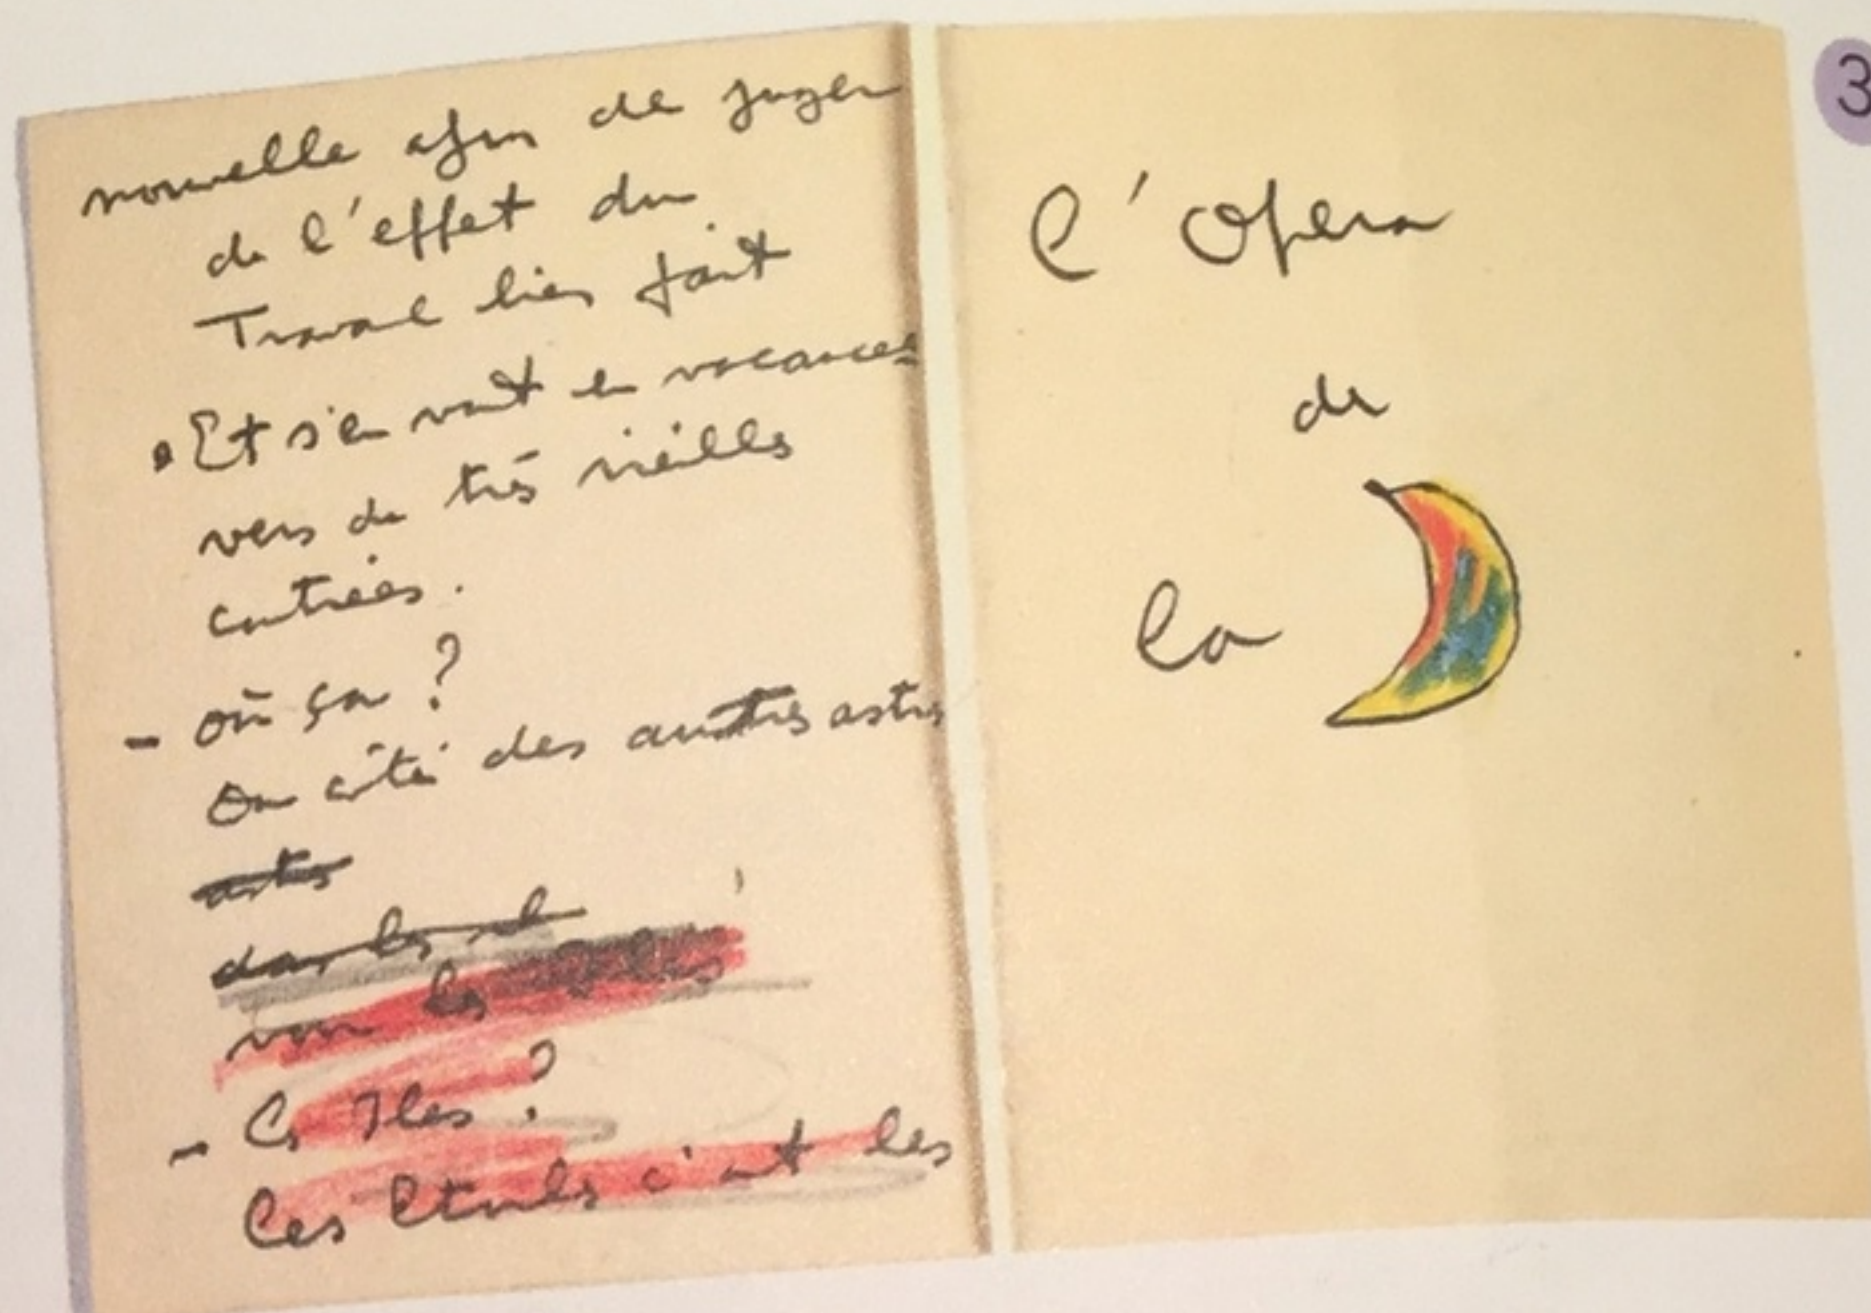 nouvelle afin de juger
de l'effet du
Travail bien fait
Et s'en vont en vacances
vers de très vieilles
contrées.
- où ça ?
Du côté des autres astres
astres
dans les
voir les
- Les Iles ?
Les Etoiles c'est les
l'Opera
de
la
3